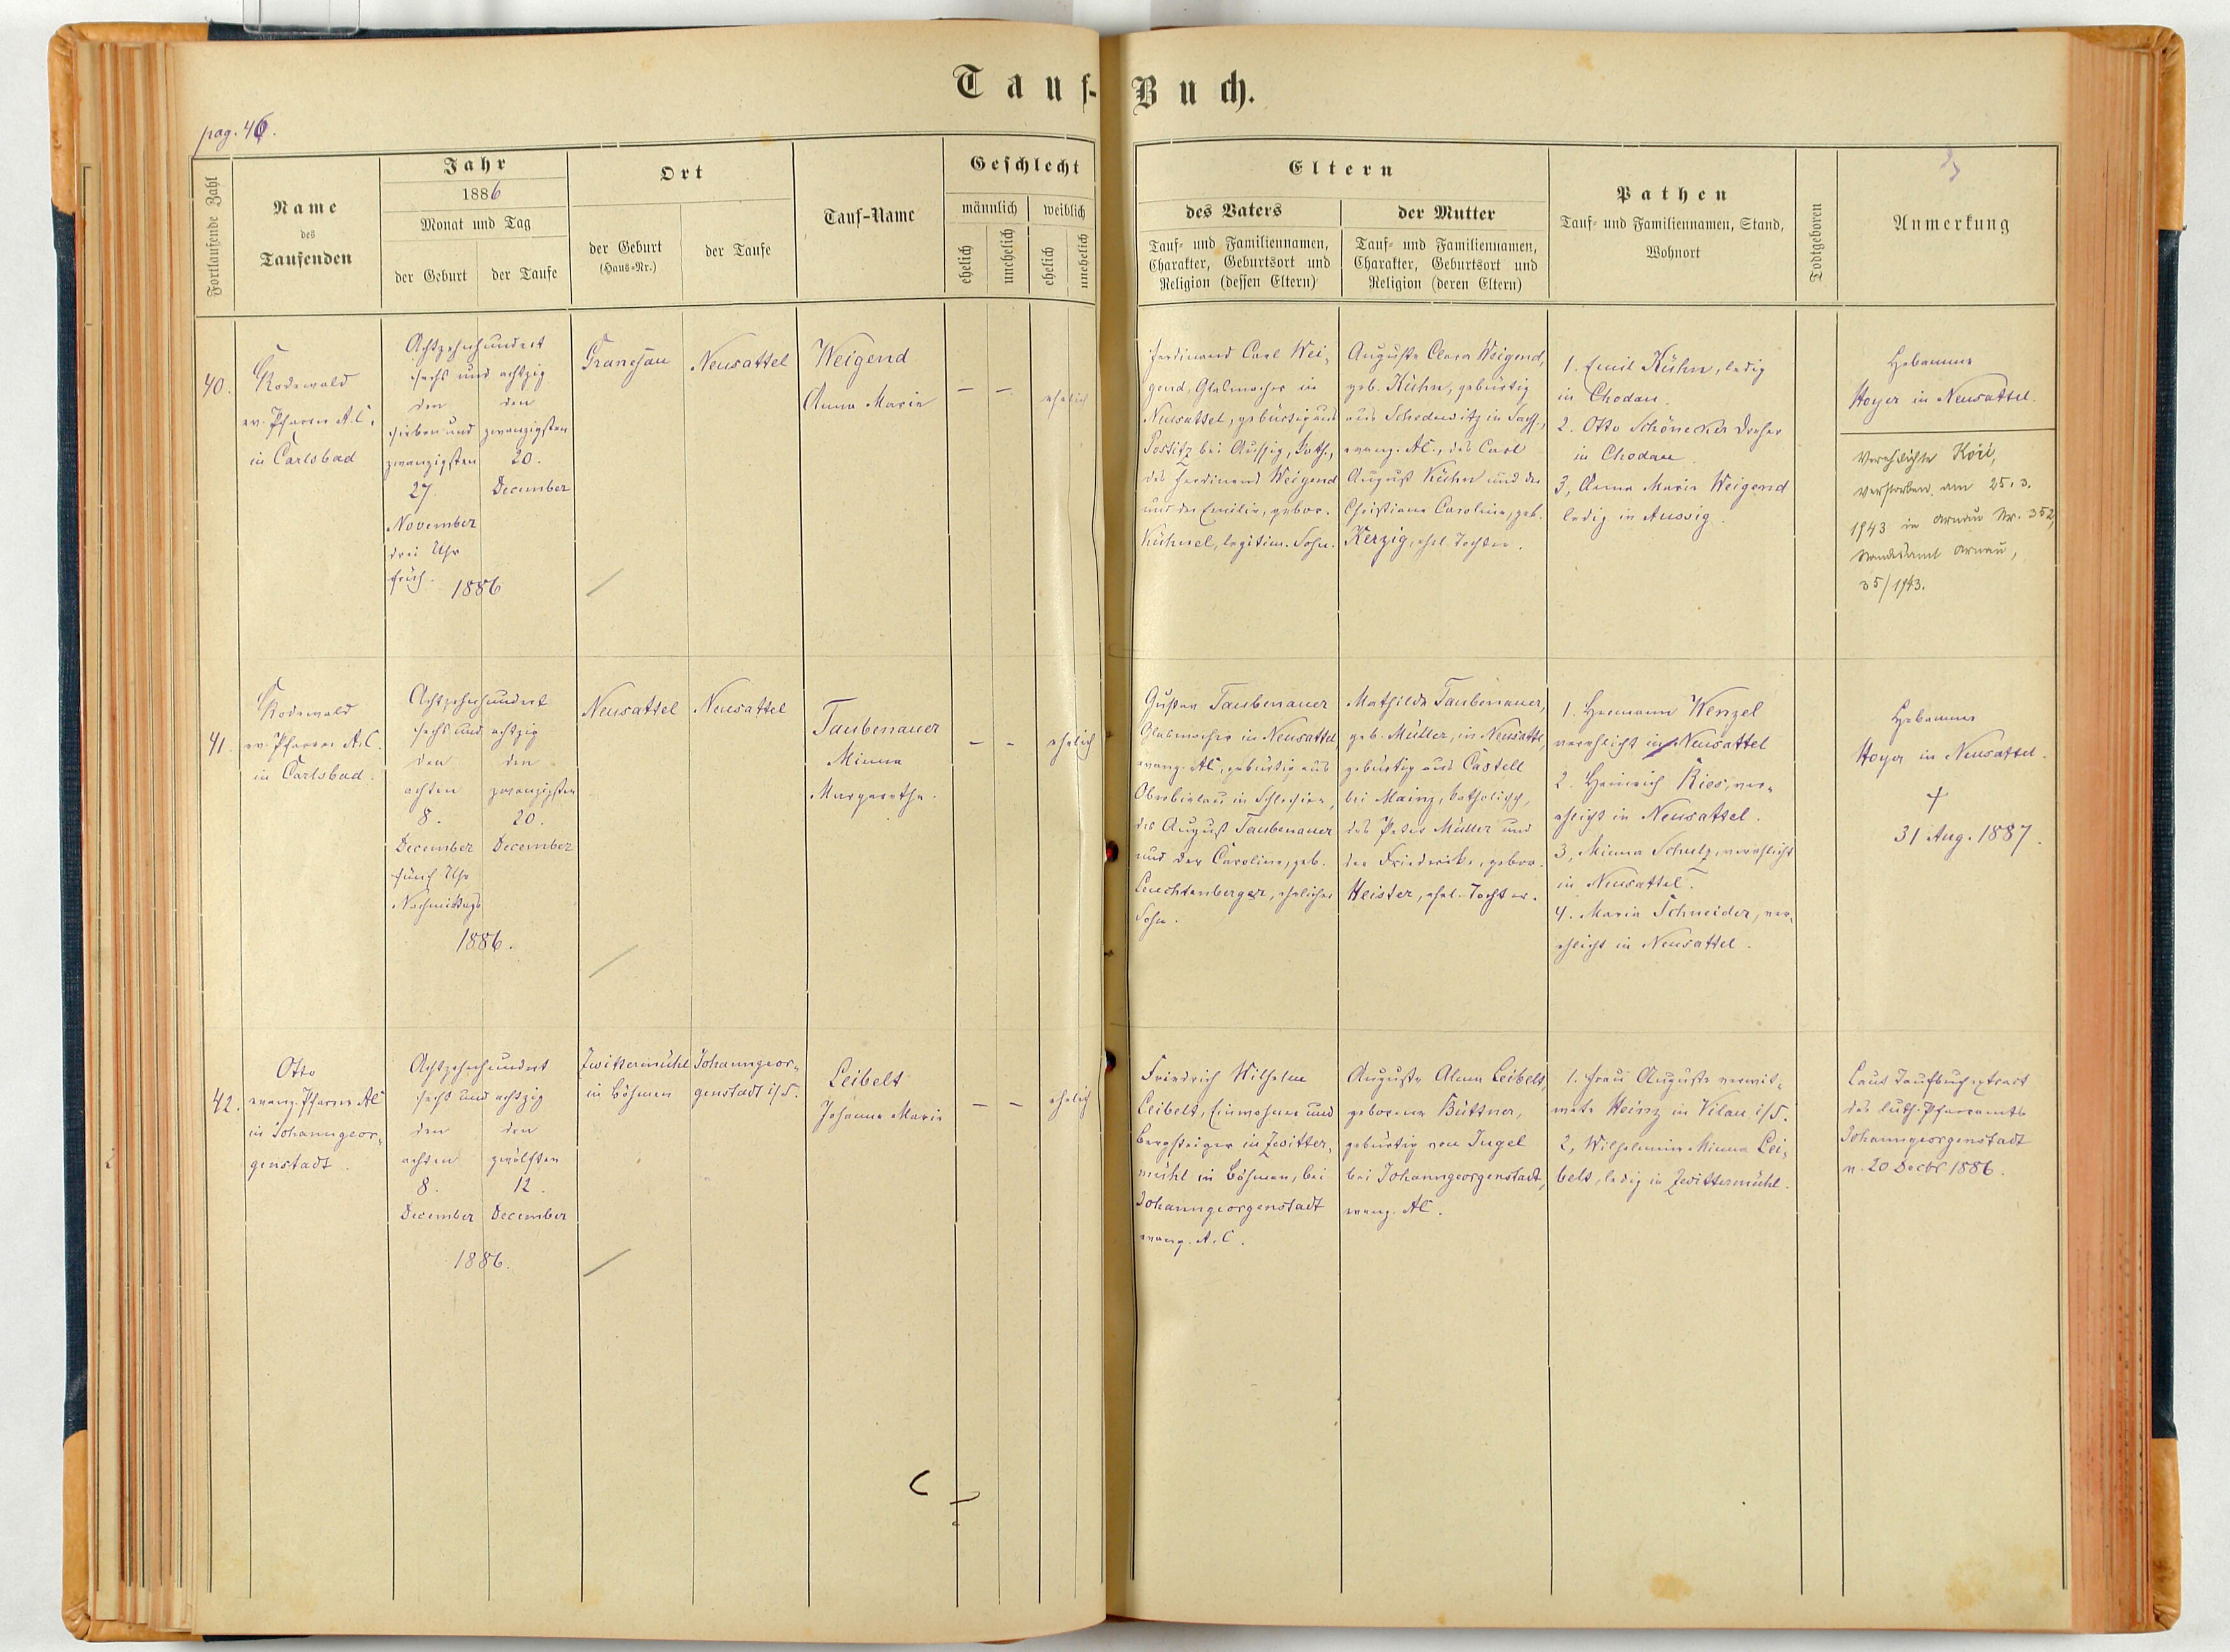 Tauf-Buch.
pag. 46.
Fortlaufende Zahl
Name
des
Taufenden
Jahr
1886
Monat und Tag
der Geburt
der Taufe
Ort
der Geburt
(Haus-Nr.)
der Taufe
Tauf-Name
Geschlecht
männlich
weiblich
ehelich
unehelich
ehelich
unehelich
Eltern
des Vaters
Tauf- und Familiennamen,
Charakter, Geburtsort und
Religion (dessen Eltern)
der Mutter
Tauf- und Familiennamen,
Charakter, Geburtsort und
Religion (deren Eltern)
Pathen
Tauf- und Familiennamen, Stand,
Wohnort
Todtgeboren
Anmerkung
40.
Rodewald
ev. Pfarrer A.C.
in Carlsbad
Achtzehnhundert
sechs und achtzig
den
sieben und
zwanzigsten
27.
November
drei Uhr
früh.
den
zwanzigsten
20.
December
1886
Granesau
Neusattel
Weigend
Anna Maria
— —
ehelich
Ferdinand Carl Wei-
gend, Glasmacher in
Neusattel, gebürtig aus
Postitz bei Aussig, kath.,
des Ferdinand Weigend
und der Emilie, gebor.
Kühnel, legitim. Sohn.
Auguste Clara Weigend,
geb. Kühn, gebürtig
aus Schedewitz in Sachs.,
evang. AC., des Carl
August Kühn und der
Christiane Caroline, geb.
Kerzig, ehel. Tochter.
1. Emil Kühn, ledig
in Chodau.
2. Otto Schönecker Dreher
in Chodau
3, Anna Maria Weigend
ledig in Aussig.
Hebamme
Hoyer in Neusattel.
Verehelichte
verstorben am 25.3.
1943 in Arnau Nr. 352,
Standesamt Arnau,
35/1943.
41.
Rodewald
ev. Pfarrer A.C.
in Carlsbad.
Achtzehnhundert
sechs und achtzig
den
achten
8.
December
fünf Uhr
Nachmittags
den
zwanzigsten
20.
December
1886.
Neusattel
Neusattel
Taubenauer
Minna
Margarethe.
— —
ehelich
Gustav Taubenauer
Glasmacher in Neusattel,
evang. AC, gebürtig aus
in Schlesien,
des August Taubenauer
und der Caroline, geb.
Leuchtenberger, ehelicher
Sohn.
Mathilde Taubenauer,
geb. Müller, in Neusattel,
gebürtig aus Castell
bei Mainz, katholisch,
des Peter Müller und
der Friederike, gebor.
Heister, ehel. Tochter.
1. Hermann Wenzel
verehlicht in Neusattel
2. Heinrich Ries, ver-
ehlicht in Neusattel.
3, Minna Schulz, verehlicht
in Neusattel.
4. Maria Schneider, ver-
ehlicht in Neusattel.
Hebamme
Hoyer in Neusattel.
†
31 Aug. 1887.
42.
Otto
evang. Pfarrer AC
in Johanngeor-
genstadt.
Achtzehnhundert
sechs und achtzig
den
achten
8.
December
den
zwölften
12.
December
1886.
Zwittermühl
in Böhmen
Johanngeor-
genstadt i/S.
Leibelt
Johanna Maria
— —
ehelich
Friedrich Wilhelm
Leibelt, Einwohner und
Bergsteiger in Zwitter-
mühl in Böhmen, bei
Johanngeorgenstadt
evang. A.C.
Auguste Alma Leibelt,
geborene Büttner,
gebürtig von Jugel
bei Johanngeorgenstadt,
evang. AC.
1. Frau Auguste verwit-
wete Heinz in Vilau i/S.
2, Wilhelmine Minna Lei-
belt, ledig in Zwittermühl.
Laut Taufbuchextract
des luth. Pfarramts
Johanngeorgenstadt
v. 20 Decbr 1886.